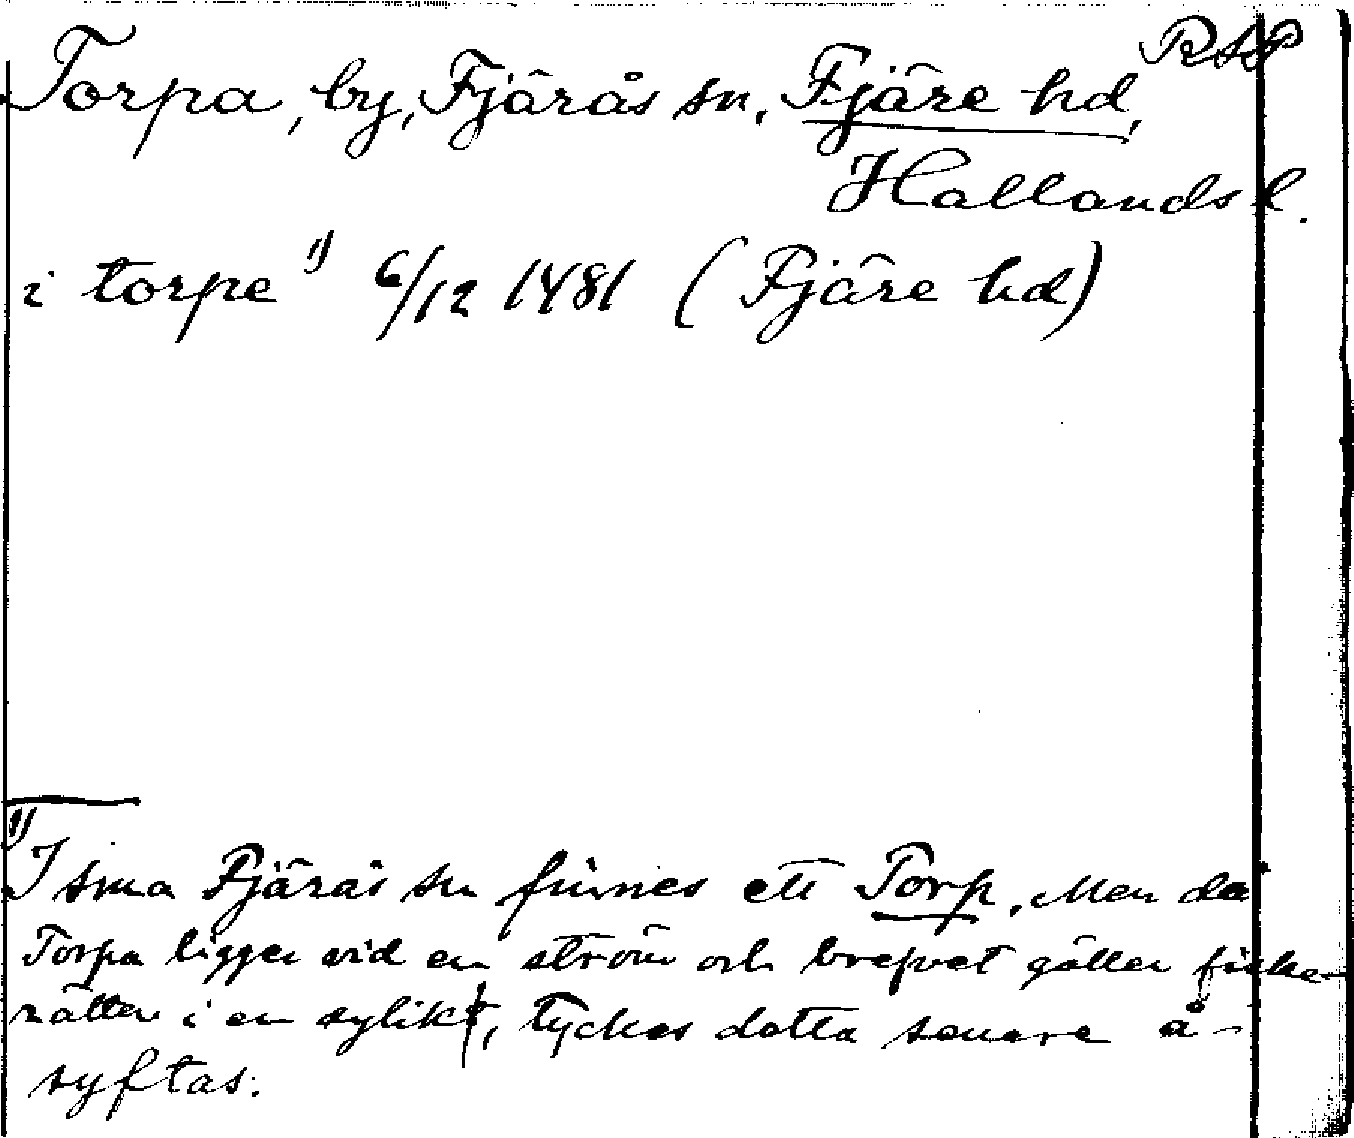 RAP
Torpa, by, Fjärås sn, Fjäre hd,
Hallands l.
i torpe 1) 6/12 1481 (Fjäre hd)
1)
I sma Fjärås sn finnes ett Torp. Men da
Torpa ligger vid en ström och brefvet gäller fiske-
rätten i en sylik, tyckes detta senare å-
syftas.